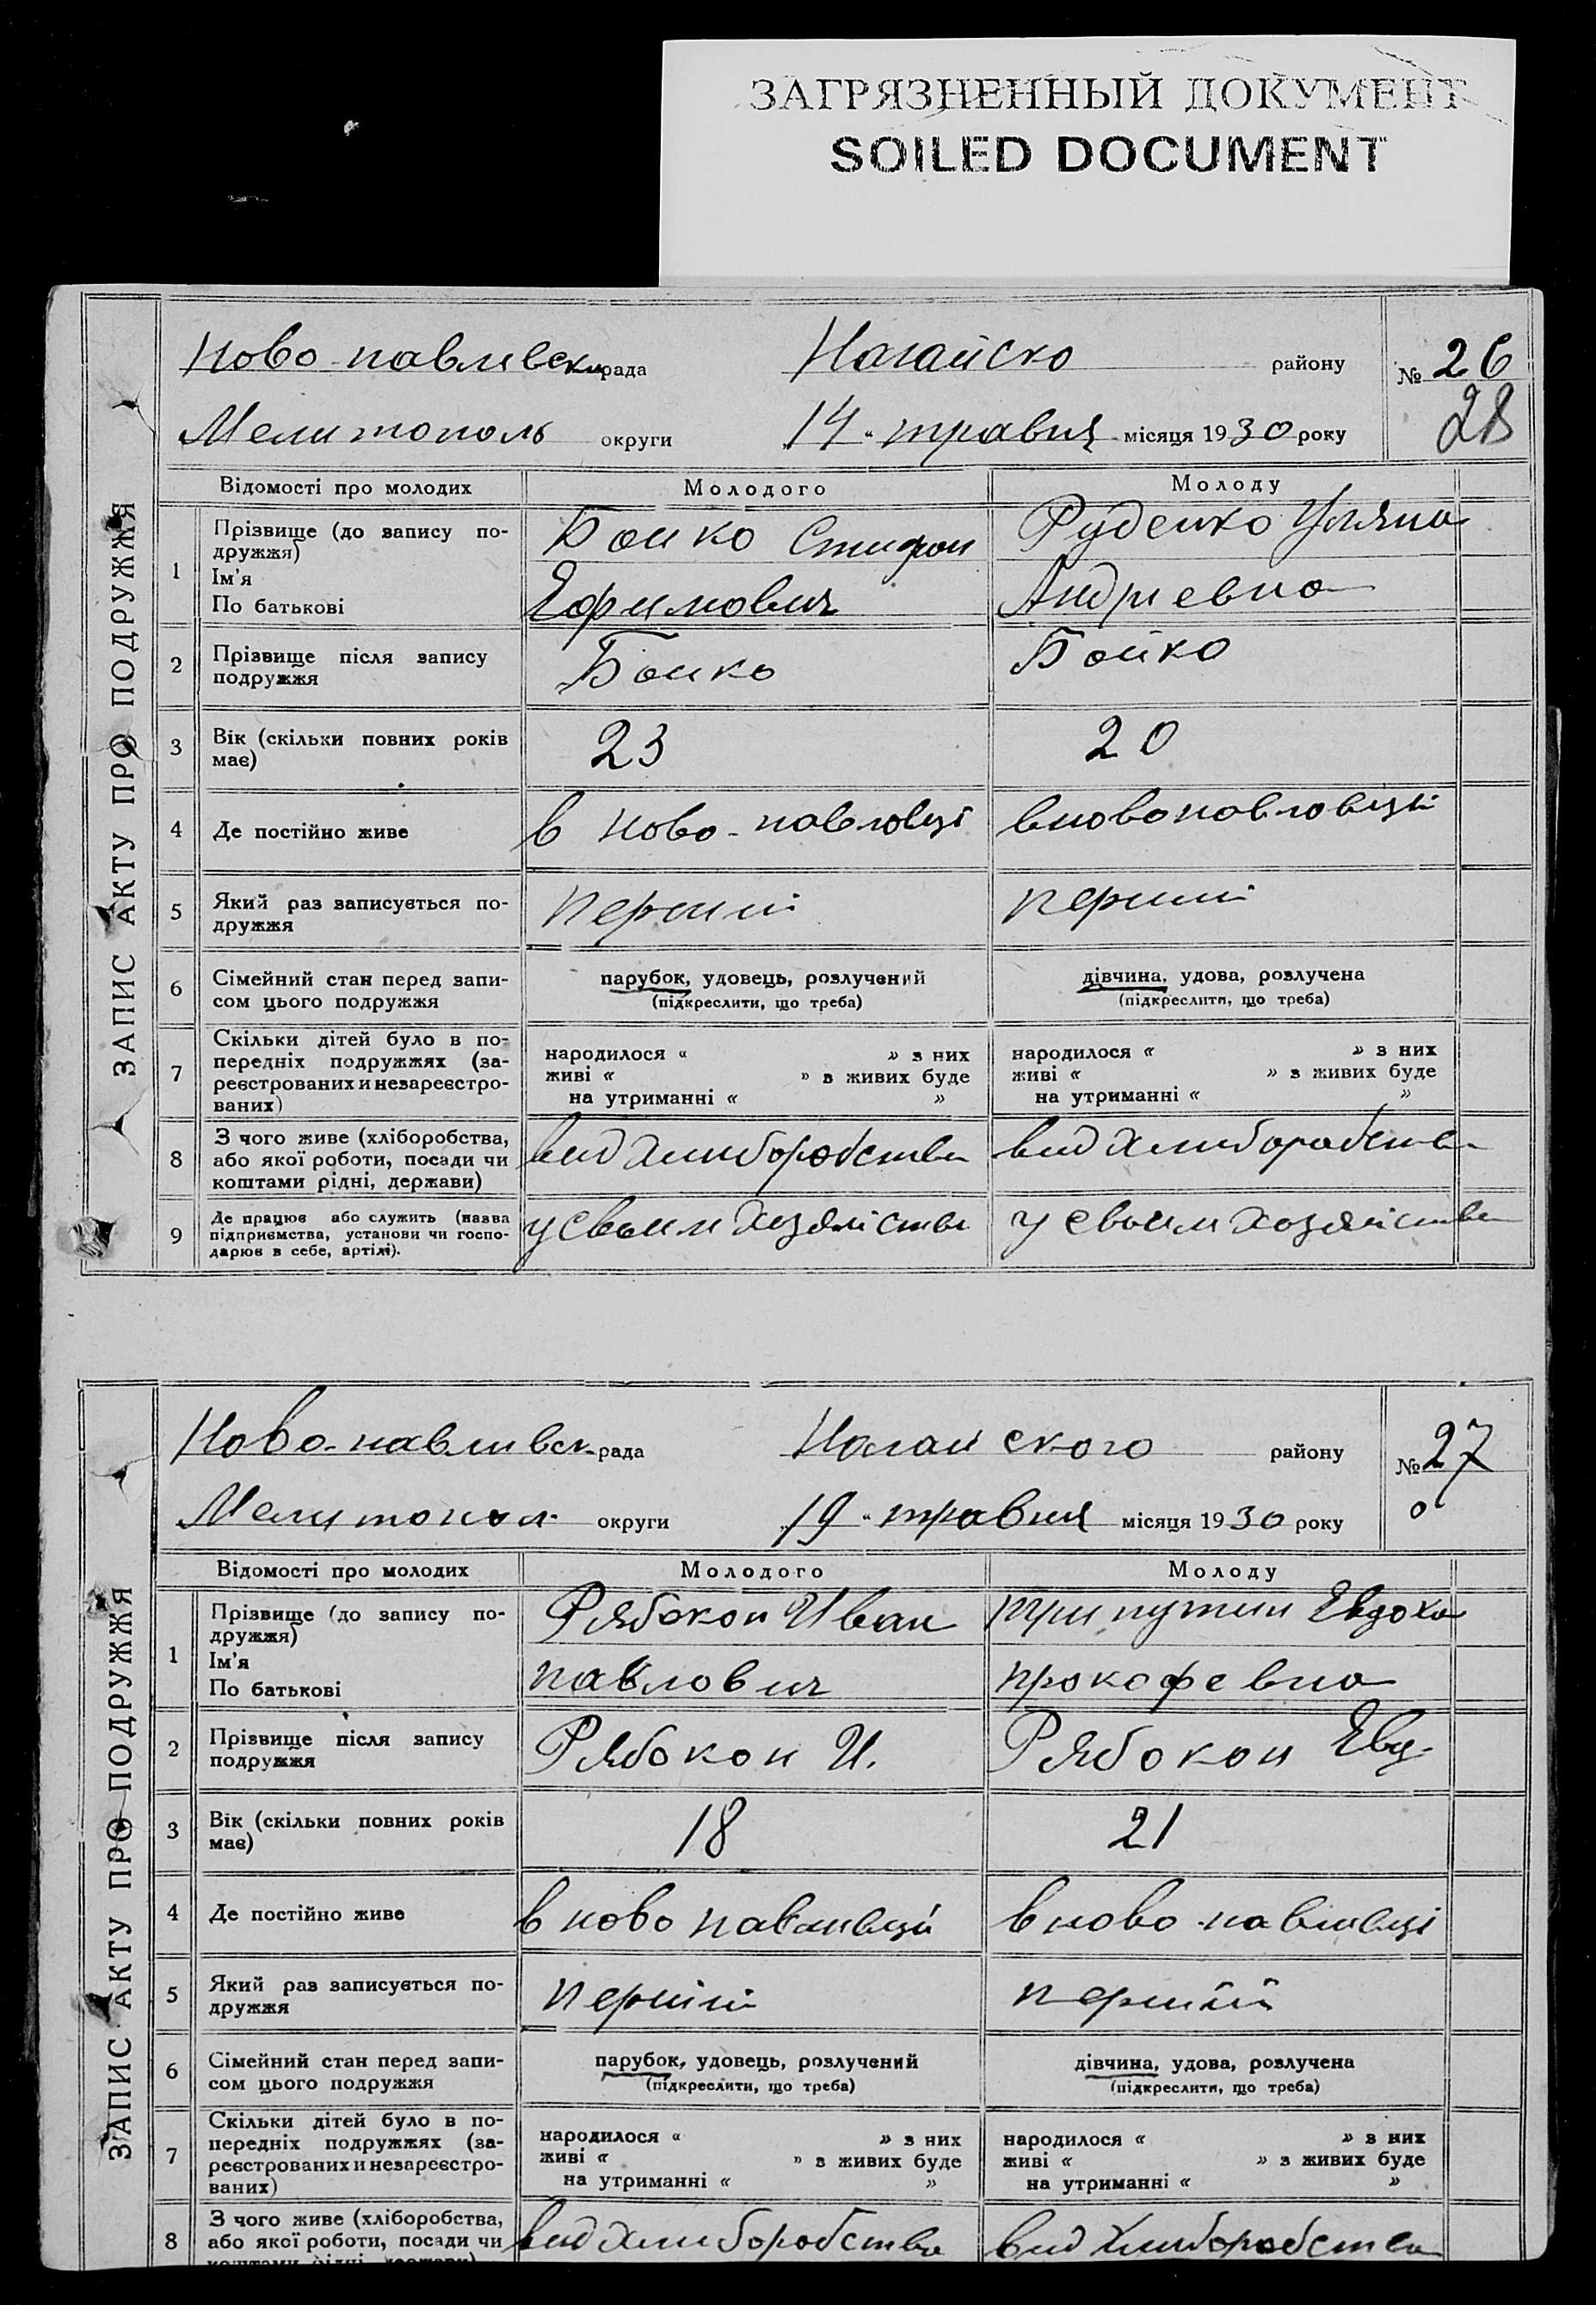 ЗАГРЯЗНЕННЫЙ ДОКУМЕНТ
SOILED DOCUMENT
ЗАПИС АКТУ ПРО ПОДРУЖЖЯ
Ново-павливска рада Нагайско району № 26
28
Мелитополь округи „14“ травня місяця 1930 року
Відомості про молодих Молодого Молоду
1 Прізвище (до запису по-
дружжя)
Ім'я
По батькові
Боико Стифан
Ефимович
Руденко Уляна
Андриевна
2 Прізвище після запису
подружжя
Боико
Бойко
3 Вік (скільки повних років
має)
23
20
4 Де постійно живе
в ново-павловці
вновопавловіцы
5 Який раз записується по-
дружжя
перший
перший
6 Сімейний стан перед запи-
сом цього подружжя
парубок, удовець, розлучений
(підкреслити, що треба)
дівчина, удова, розлучена
(підкреслити, що треба)
7 Скільки дітей було в по-
передніх подружжях (за-
реєстрованих и незареєстро-
ваних)
народилося « » з них
живі « » з живих буде
на утриманні « »
народилося « » з них
живі « » з живих буде
на утриманні « »
8 З чого живе (хліборобства,
або якої роботи, посади чи
коштами рідні, держави)
вид хлиборобства
вид хлиборобства
9 Де працює або служить (назва
підприємства, установи чи госпо-
дарює в себе, артілі).
у своим хозяйстви
у своим хозяйстви
ЗАПИС АКТУ ПРО ПОДРУЖЖЯ
Ново-павливск рада Нагайского району № 27
Мелитопол округи „19“ травня місяця 1930 року
Відомості про молодих Молодого Молоду
1 Прізвище (до запису по-
дружжя)
Ім'я
По батькові
Рябокон Иван
павлович
Трипутин Евдоха
прокофевна
2 Прізвище після запису
подружжя
Рябокон И.
Рябокон Евд.
3 Вік (скільки повних років
має)
18
21
4 Де постійно живе
в ново павливци
в ново-павливці
5 Який раз записується по-
дружжя
перший
перший
6 Сімейний стан перед запи-
сом цього подружжя
парубок, удовець, розлучений
(підкреслити, що треба)
дівчина, удова, розлучена
(підкреслити, що треба)
7 Скільки дітей було в по-
передніх подружжях (за-
реєстрованих и незареєстро-
ваних)
народилося « » з них
живі « » з живих буде
на утриманні « »
народилося « » з них
живі « » з живих буде
на утриманні « »
8 З чого живе (хліборобства,
або якої роботи, посади чи
коштами рідні, держави)
вид хлиборобства
вид хлиборобства